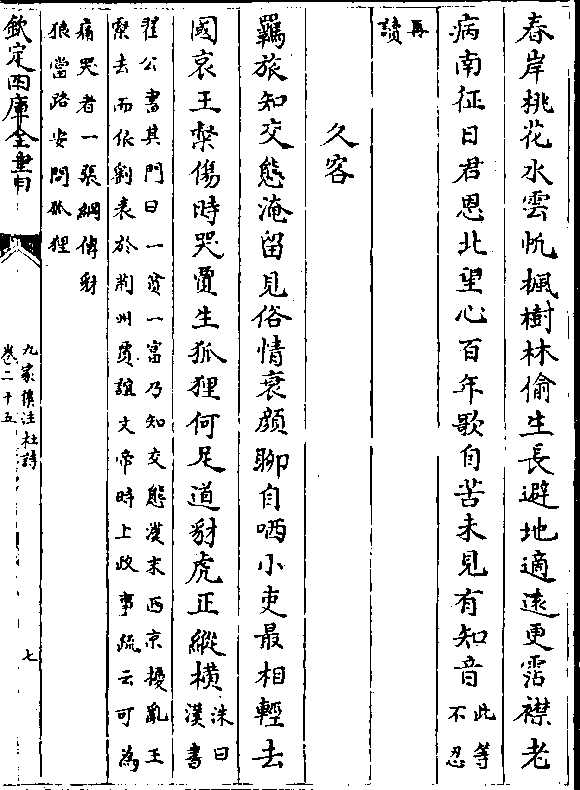 春岸桃花水雲帆楓樹林偷生長避地適遠更霑襟老
病南征日君恩北望心百年歌自苦未見有知音此等
不忍
再
讀
久客
羈旅知交態淹留見俗情衰顏聊自哂小吏最相輕去
國哀王粲傷時哭賈生狐狸何足道豺虎正縱橫洙曰
漢書
翟公書其門曰一貧一富乃知交態漢末西京擾亂王
粲去而依劉表於荆州賈誼文帝時上政事疏云可為
痛哭者一張綱傳豺
狼當路安問狐狸
欽定四庫全書
九家集注杜詩
卷二十五
七